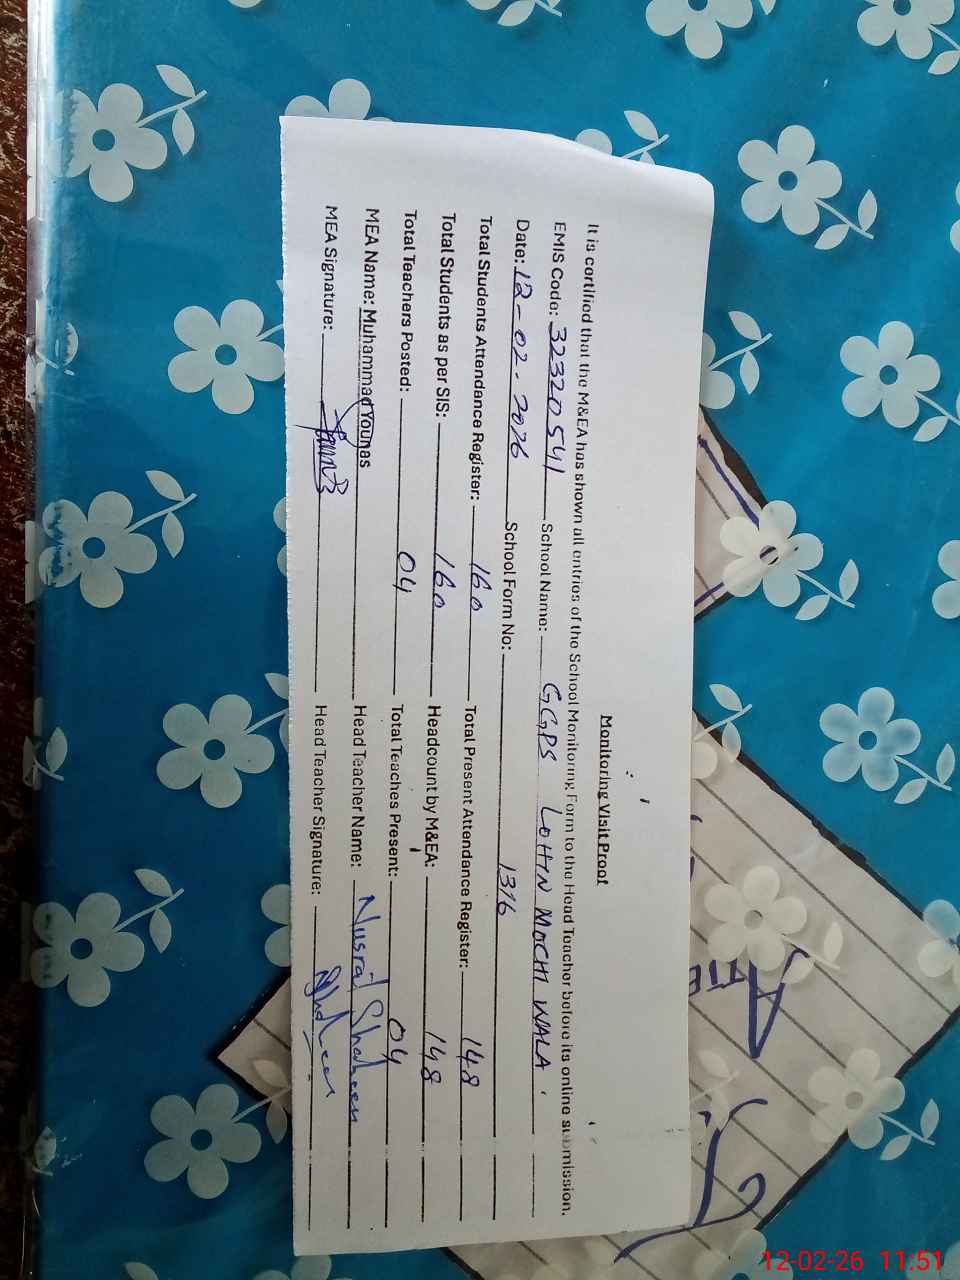 Monitoring Visit Proof
It is certified that the M&EA has shown all entries of the School Monitoring Form to the Head Teacher before its online submission.
EMIS Code: 32320541 School Name: GGPS LOHIN MOCHI WALA
Date: 12-02-2026 School Form No: 1316
Total Students Attendance Register: 160 Total Present Attendance Register: 148
Total Students as per SIS: 160 Headcount by M&EA: 148
Total Teachers Posted: 04 Total Teaches Present: 04
MEA Name: Muhammad Younas Head Teacher Name: Nusrat Shaheen
MEA Signature: Head Teacher Signature:
12-02-26 11:51